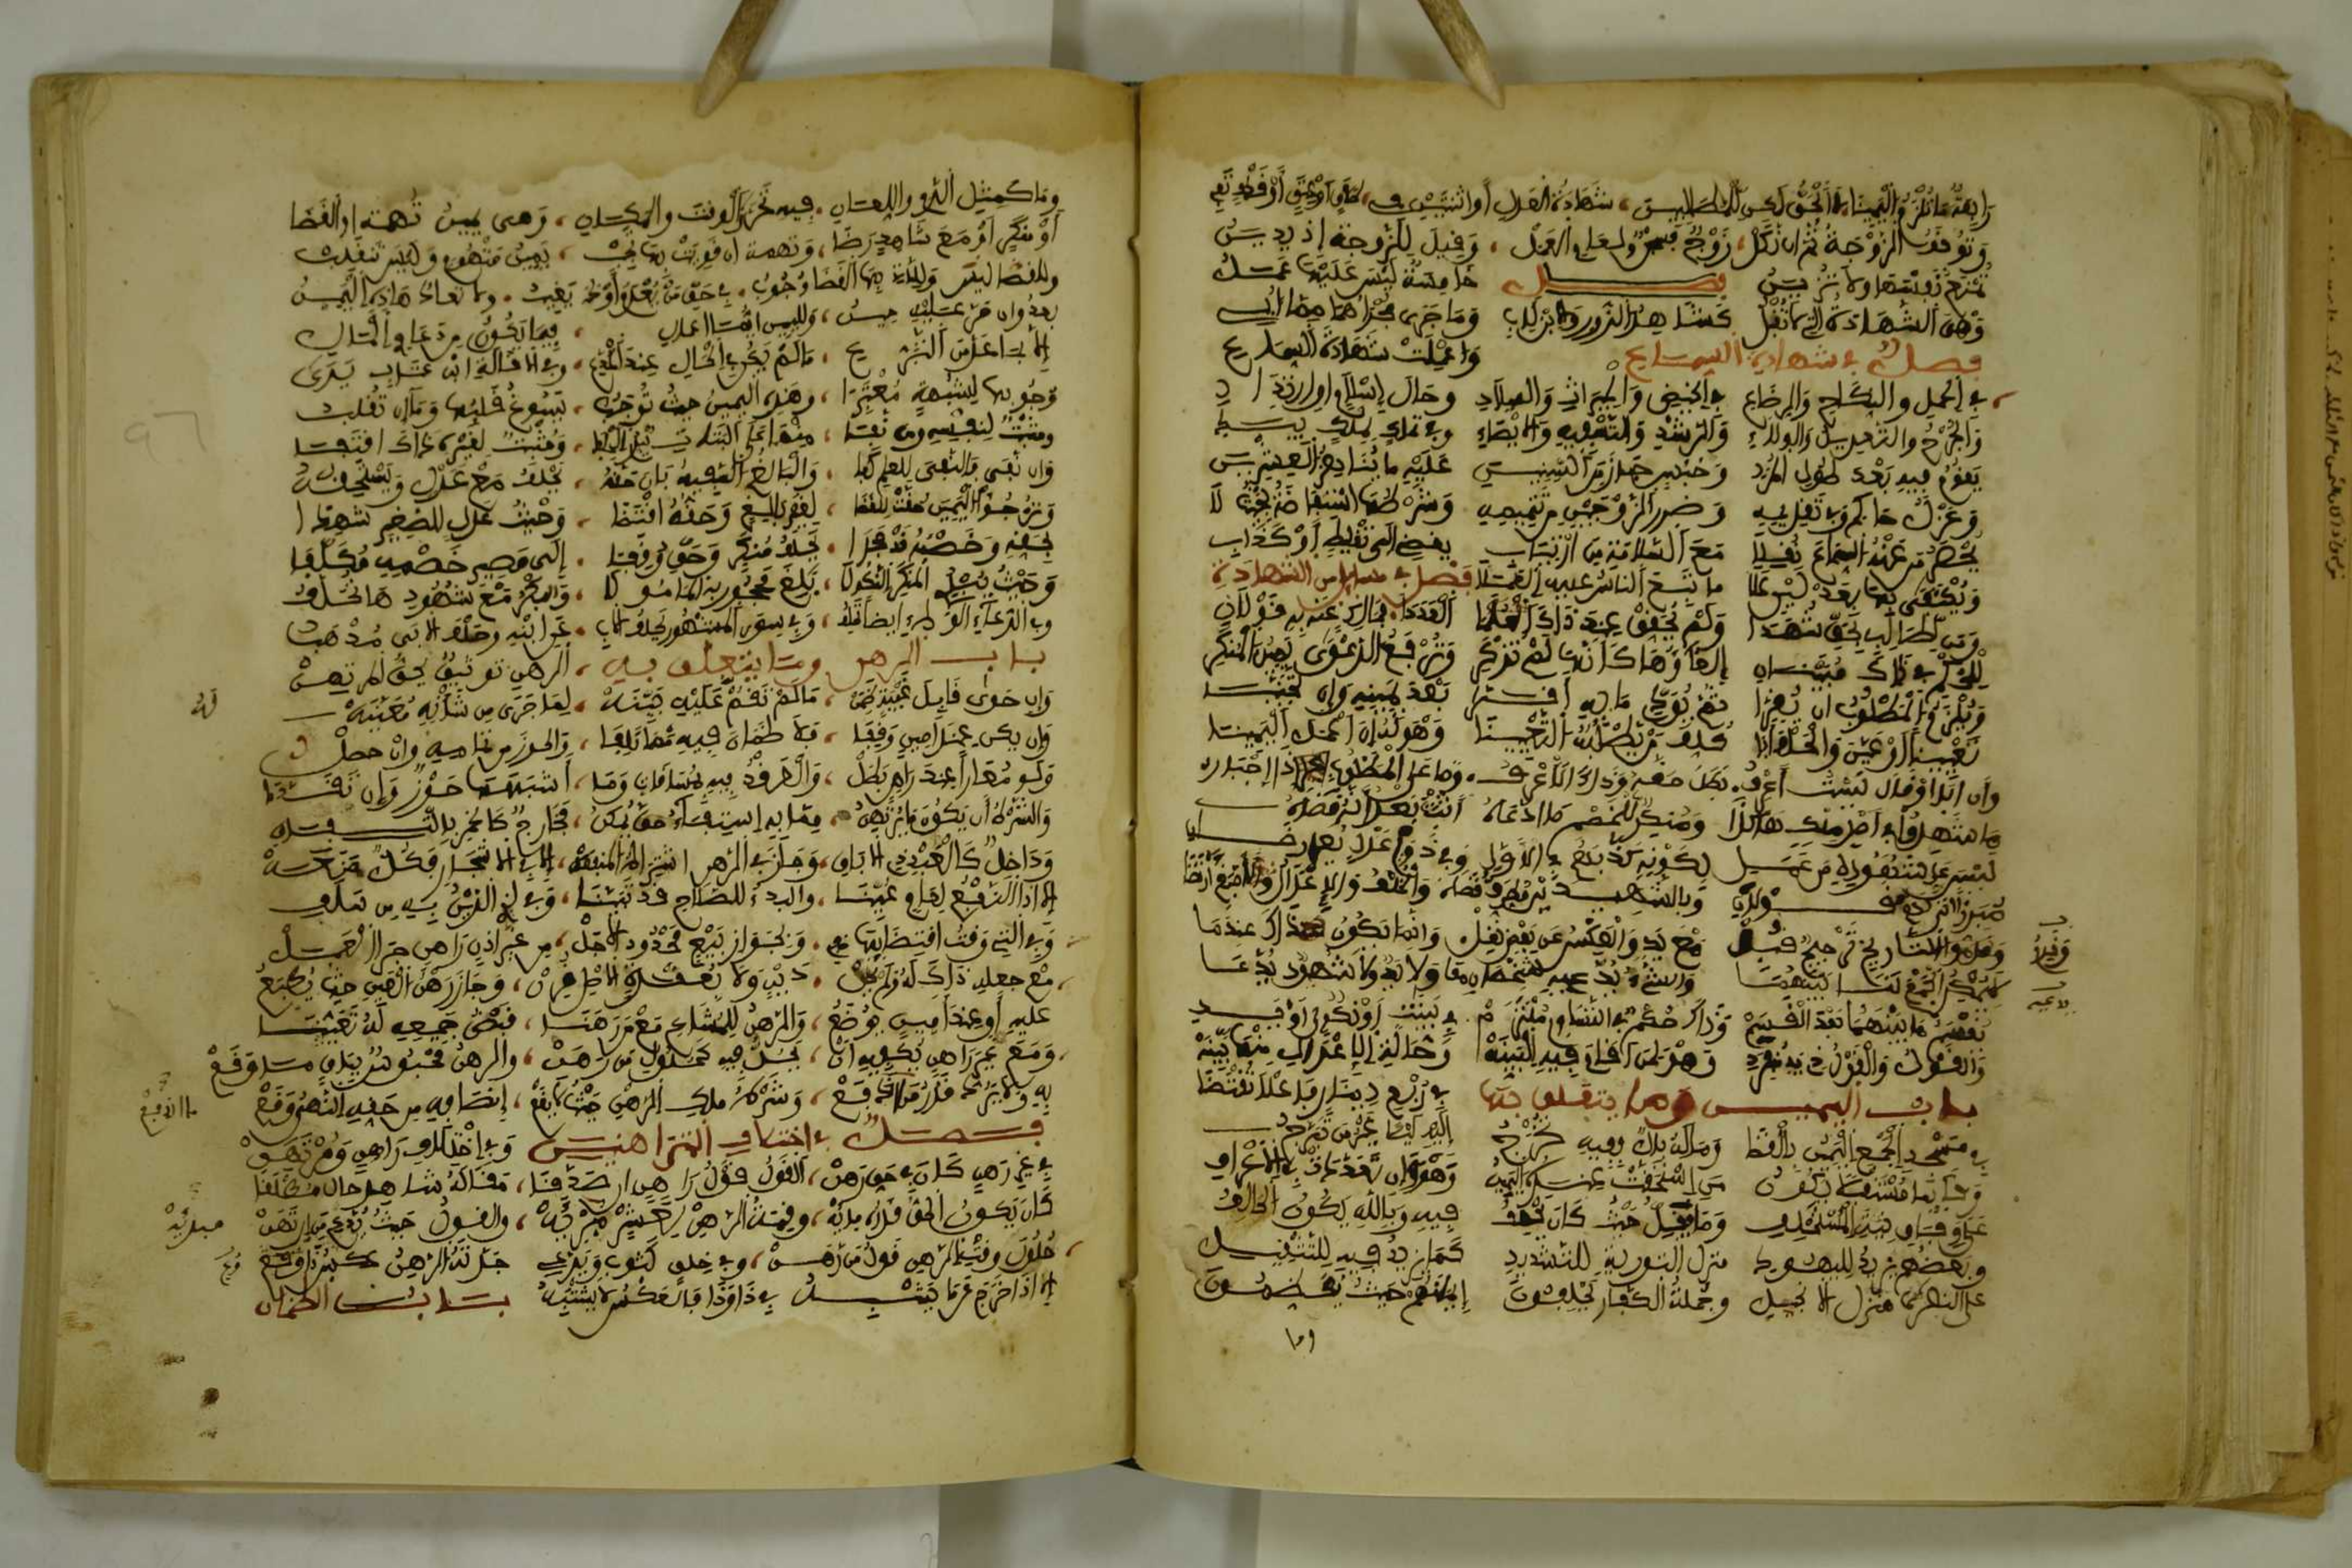 رابعة ما تلزم اليمينا لا الحق لكن للمطالبين شهادة العدل أو اثنتين في طلاق أو عتق أو قذف يفي
وتوقف الزوجة ثم إن نكل زوج فسجن ولعام العمل وقيل للزوجة إذ يدين
تمنع نفسها ولا تزين فصل خامسة ليس عليها عمل
وهي الشهادة التي لا تقبل كشاهد الزور والابن للأب وما جرى مجراهما مما أبي
فصل في شهادة السماع وأعملت شهادة السماع
في الحمل والنكاح والرضاع في الحيض والميراث والميلاد وحال إسلام أو ارتداد
والجرح والتعديل والولاء والرشد والتسفيه والإيصاء وفي تملك لملك بيد
يقام فيه بعد طول المدد وحبس جاز من السنين عليه ما يناهز العشرين
وعزل حاكم وفي تقديمه وضرر الزوجين من تتميمه وشرطها استفاضة بحيث لا
يحصر من عنه السماع نقلا مع السلامة من ارتياب يفضي إلى تغليط أو كذاب
ويكتفى بها بعدلين على ما تابع الناس عليه العملا فصل في مسائل من الشهادة
ومن لطالب بحق شهدا ولم يحقق عند ذاك العددا فمالك عنه به قولان
للحكم في ذاك مبينان إلغاؤها كأنها لم تذكر وترفع الدعوى يمين المنكر
ويلزم المطلوب أن يقرا ثم يؤدي ما به أقرا بعد يمينه وإن تجنبا
تعيينا أو عين والحلف أبى كلف من يطلبه التعيينا وهو له إن أعمل اليمينا
وإن أبى أو قال لست أعرف بطل حقه وذاك الأعرف وما على المطلوب إجبار
ما شهدوا في أصل ملك هكذا ومنكر للخصم ما ادعاه أثبت بعد أنه قضاه
ليس على شهوده من عمل لكونه كذبهم في الأول وفي ذوي عدل يعارضان
مبرزا أتى لهم قولان وبالشهيدين مطرف قضى والحلف والأعدل أصبغ ارتضى
وقدم التاريخ ترجيح قبل مع يد والعكس عن بعض نقل وإنما يكون ذاك عندما
لا يمكن الجمع لنا بينهما والشيء يدعيه شخصان معا ولا يد ولا شهود يدعى
يقسم ما بينهما بعد القسم وذاك حكم في التساوي ملتزم في بينات أو نكول أو يد
والقول والقول ذي يد منفرد وهو لمن أقام فيه البينه وحالة الأعدل منها بينه
باب اليمين وما يتعلق بها في ربع دينار فأعلا تقتضا
في مسجد الجمع اليمين بالقضا وما له بال ففيه تخرج إليه ليلا غير من تبرج
وقائما مستقبلا يكون من استحقت عنده اليمين وهي وإن تعددت في الأعرف
على وفاق نية المستحلف وما يقل حيث كان يحلف فيه وبالله يكون الحلف
وبعضهم يزيد لليهود منزل التورية للتشديد كما يزيد فيه للتثقيل
على النصارى منزل الانجيل وجملة الكفار يحلفون إيمانهم حيث يعظمون
وما
وما كمثل الدم واللعان فيه تحري الوقت والمكان وهي يمين تهمة أو القضا
أو منكر أو مع شاهد رضا وتهمة إن قويت بها تجب يمين متهوم وليس تنقلب
وللقضا بها القضا وجوب في حق من يعدم أو يغيب ولا تعاد هذه اليمين
بعد وإن مر عليها حين ولليمين أيما إعمال فيما يكون من دعاوي المال
إلا بما عد من التبرع ما لم يكن في الحال عند المدعي وفي الإقالة ابن عتاب يرى
وجوبها لشبهة معتبرا وهذه اليمين حيث توجب يسوغ قلبها وما إن تقلب
ومثبت لنفسه ومن نفى عنه على البتات ومثبت لغيره ذاك اقتفى
وإن نفى فالنفي للعلم كفى والبالغ السفيه بان حقه يحلف مع عدل ويستحقه
وترجأ اليمين حقت للقضا لغير بالغ وحقه اقتضا وحيث عدل للصغير شهدا
بحقه وخصمه قد جحدا يحلف منكر وحق وقفا إلى مصير خصمه مكلفا
وحيث يبدي المنكر النكولا بلغ محجور به المامولا والبكر مع شهود ها تحلف
وفي ادعاء الوطء أيضا وفي سوى المشهور يحلف الأب عن ابنه وحلف الابن مذهب
باب الرهن وما يتعلق به الرهن توثيق بحق المرتهن
وإن حوى قابل غيبة ضمن ما لم تقم عليه بينه لما جرى من شأنه معينه
وإن يكن عند أمين وقفا فلا ضمان فيه مهما تلفا والحوز من تمامه وإن حصل
ولو معارا عند راهن بطل والعقد فيه لمساقاة وما أشبهها حوز وإن تقدما
والشرط أن يكون ما يرتهن مما به استيفاء حق يمكن فخارج كالخمر باتفاق
وداخل كالعبد ذي الاباق وجاز في الرهن اشتراط المنفعة إلا في الاشجار فكل منعه
إلا إذا النفع لعام عينا والبدء للصلاح قد تبينا وفي الذي الدين به من سلف
وفي التي وقت اقتضائها خفي وبجواز بيع محدود الأجل من غير إذن راهن جرا العمل
مع جعله ذاك له ولم يحن دين ولا بعقدة الأصل قرن وجاز رهن العين حيث يطبع
عليه أو عند أمين يوضع والرهن للمشاع مع من رهنا قبض جميعه له تعينا
ومع غير راهن يكفيه أن يحل فيه كحلول من رهن والرهن محبوس بباقي ما وقع
به ولا يرد قدر ما وشرط ملك الرهن حيث لا يقع إنصافه من حقه النهي وقع
فصل في اختلاف المتراهنين وفي اختلاف راهن ومرتهن
في عين رهن كان في حق رهن القول قول راهن إن صدقا مقاله شاهد حال مطلقا
كأن يكون الحق قدره مائه وقيمة الرهن لعشر مبديه والقول حيث يدعي من ارتهن
حلول وقت الرهن قول من رهن وفي خلق كثوب ويدعي جدته الراهن عكس ذا وقع
إلا إذا خرج عما يشبه في ذا وذا فالعكس لا يشتبه باب الضمان